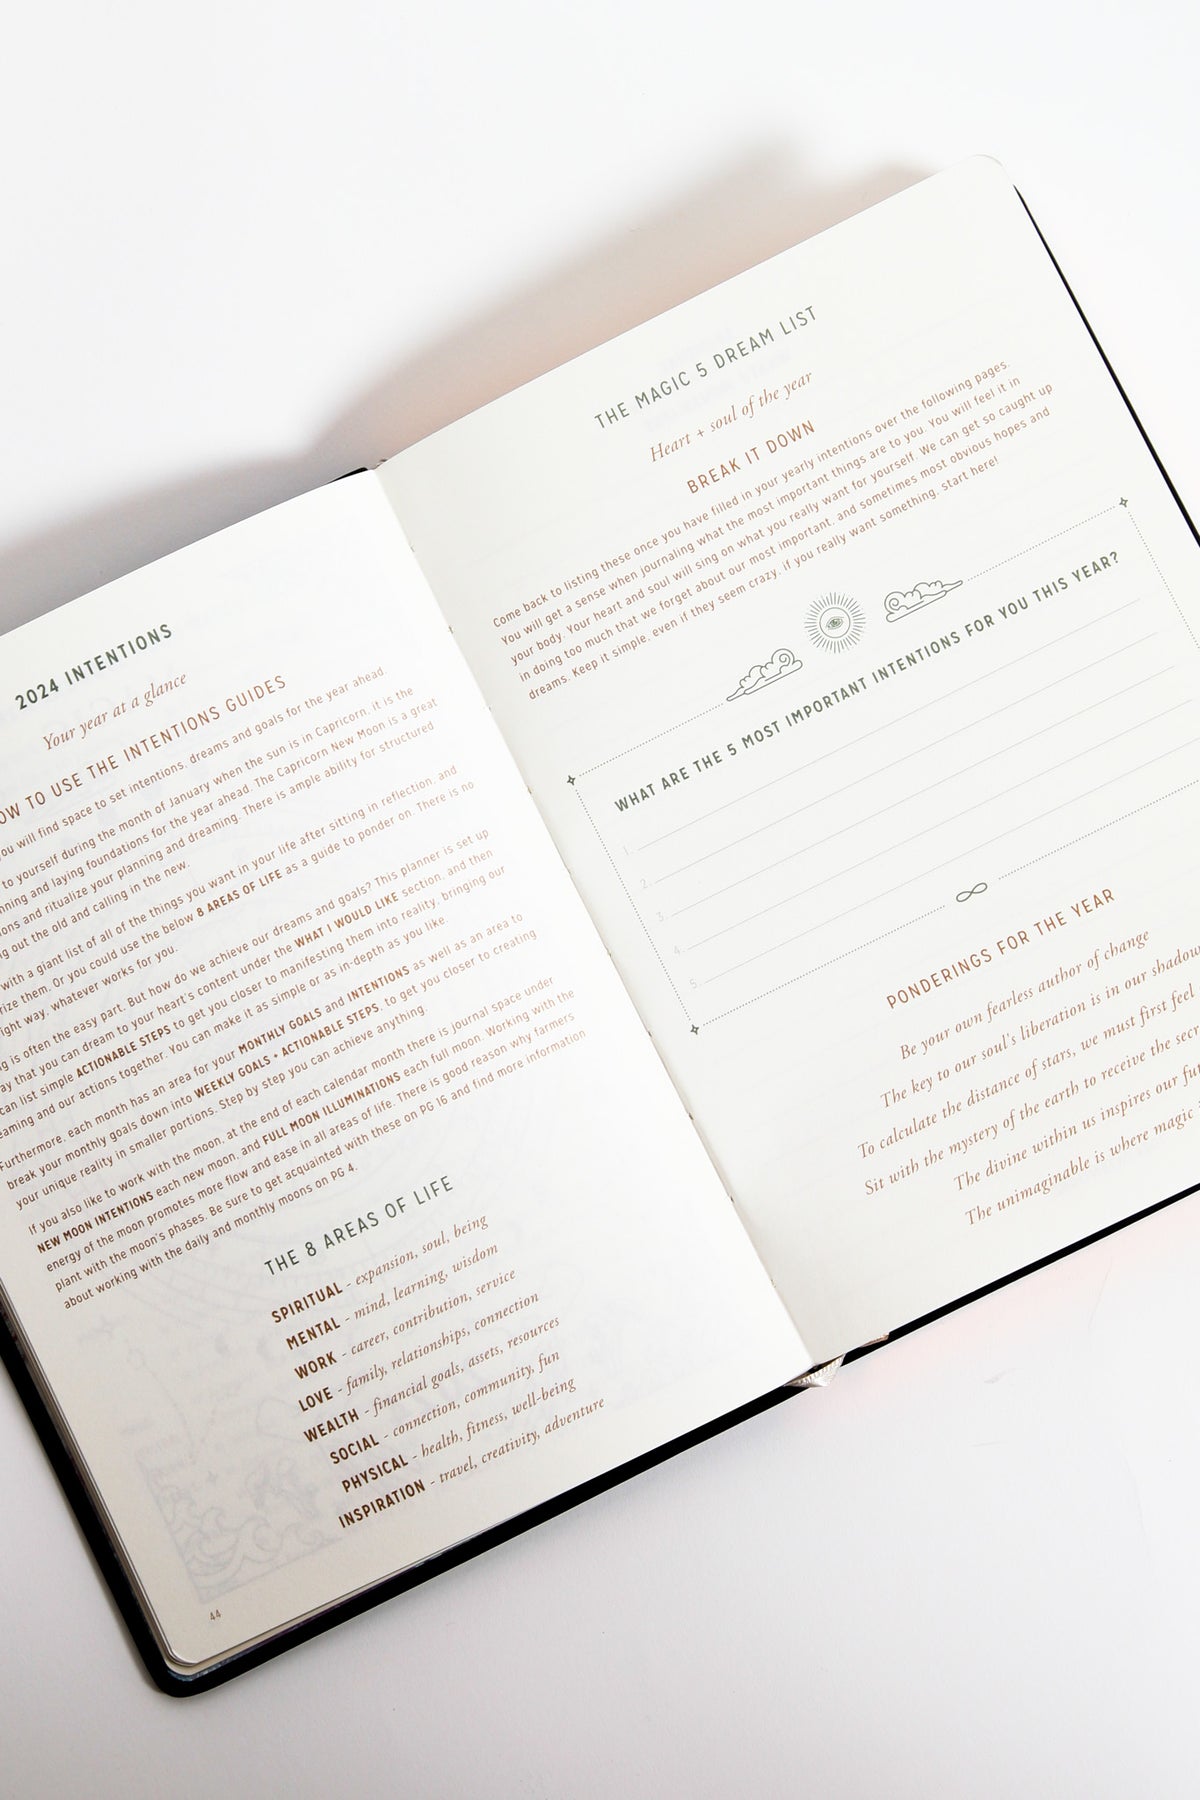 2024 INTENTIONS
Your year at a glance
OW TO USE THE INTENTIONS GUIDES
you will find space to set intentions, dreams and goals for the year ahead.
to yourself during the month of January when the sun is in Capricorn, it is the
nning and laying foundations for the year ahead. The Capricorn New Moon is a great
ons and ritualize your planning and dreaming. There is ample ability for structured
g out the old and calling in the new.
with a giant list of all of the things you want in your life after sitting in reflection, and
rize them. Or you could use the below 8 AREAS OF LIFE as a guide to ponder on. There is no
ight way, whatever works for you.
g is often the easy part. But how do we achieve our dreams and goals? This planner is set up
ay that you can dream to your heart's content under the WHAT I WOULD LIKE section, and then
can list simple ACTIONABLE STEPS to get you closer to manifesting them into reality, bringing our
eaming and our actions together. You can make it as simple or as in-depth as you like.
Furthermore, each month has an area for your MONTHLY GOALS and INTENTIONS as well as an area to
break your monthly goals down into WEEKLY GOALS + ACTIONABLE STEPS, to get you closer to creating
your unique reality in smaller portions. Step by step you can achieve anything.
If you also like to work with the moon, at the end of each calendar month there is journal space under
NEW MOON INTENTIONS each new moon, and FULL MOON ILLUMINATIONS each full moon. Working with the
energy of the moon promotes more flow and ease in all areas of life. There is good reason why farmers
plant with the moon's phases. Be sure to get acquainted with these on PG 16 and find more information
about working with the daily and monthly moons on PG 4.
THE 8 AREAS OF LIFE
SPIRITUAL - expansion, soul, being
MENTAL - mind, learning, wisdom
WORK - career, contribution, service
LOVE - family, relationships, connection
WEALTH - financial goals, assets, resources
SOCIAL - connection, community, fun
PHYSICAL - health, fitness, well-being
INSPIRATION - travel, creativity, adventure
44
THE MAGIC 5 DREAM LIST
Heart + soul of the year
BREAK IT DOWN
Come back to listing these once you have filled in your yearly intentions over the following pages.
You will get a sense when journaling what the most important things are to you. You will feel it in
your body. Your heart and soul will sing on what you really want for yourself. We can get so caught up
in doing too much that we forget about our most important, and sometimes most obvious hopes and
dreams. Keep it simple, even if they seem crazy, if you really want something, start here!
WHAT ARE THE 5 MOST IMPORTANT INTENTIONS FOR YOU THIS YEAR?
1.
2.
3.
4.
5.
PONDERINGS FOR THE YEAR
Be your own fearless author of change
The key to our soul's liberation is in our shadow
To calculate the distance of stars, we must first feel
Sit with the mystery of the earth to receive the secr
The divine within us inspires our fut
The unimaginable is where magic